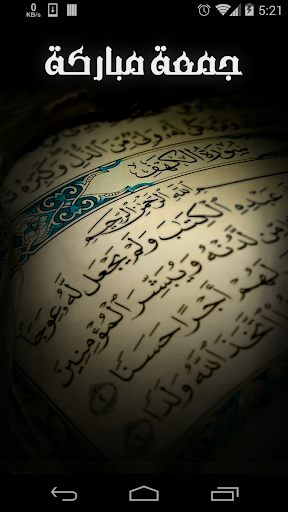 0
KB/s
5:21
جمعة مباركة
وَلِىٌّ مِّنَ ٱلذُّلِّ وَكَبِّرْهُ
سُورَةُ الكَهْفِ
بِسْمِ ٱللَّهِ ٱلرَّحْمَٰنِ ٱلرَّحِيمِ
عَبْدِهِ ٱلْكِتَٰبَ وَلَمْ يَجْعَل لَّهُۥ عِوَجَا
مِّن لَّدُنْهُ وَيُبَشِّرَ ٱلْمُؤْمِنِينَ
لَهُمْ أَجْرًا حَسَنًا
ٱتَّخَذَ ٱللَّهُ وَلَدًا ٤